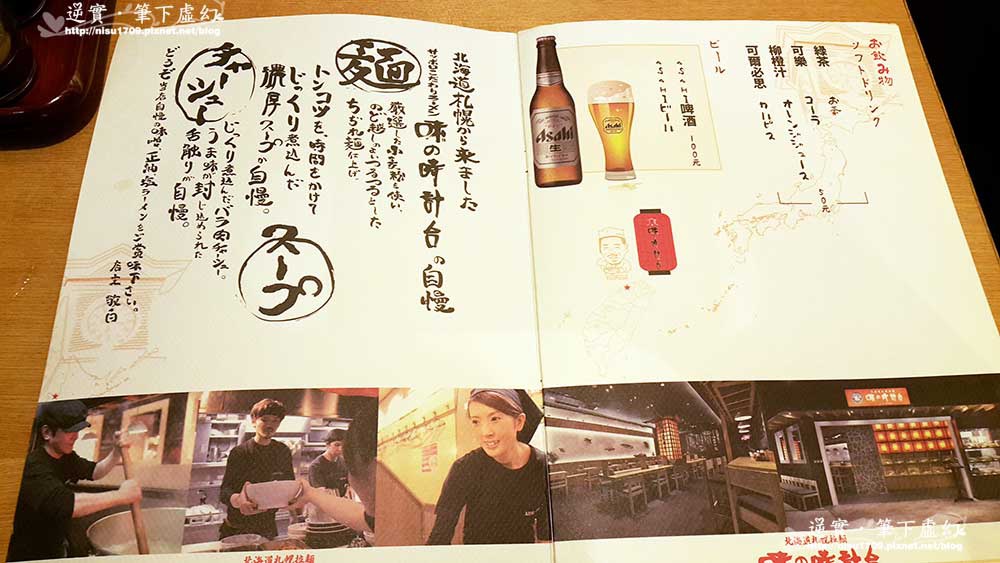 逆實・筆下虛幻
http://nisu1709.pixnet.net/blog
北海道札幌から来ました
味の時計台の自慢
麺
厳選した小麦粉を使い、
のど越しのよいつるつるとした
ちぢれ麺仕上げ。
スープ
トンコツを、時間をかけて
じっくり煮込んだ
濃厚スープが自慢。
チャーシュー
じっくり煮込んだバラ肉チャーシュー。
うま味が封じ込められた
舌触りが自慢。
どうぞ当店自慢の味噌、正油、塩ラーメンをご賞味下さい。
店主 敬白
お飲み物
ソフトドリンク
綠茶 お茶
可樂 コーラ
柳橙汁 オレンジジュース
可爾必思 カルピス
50元
ビール
ASAHI啤酒 100元
ASAHIビール
Asahi
生
味の時計台
北海道札幌拉麺
北海道札幌拉麺
味の時計台
逆實・筆下虛幻
http://nisu1709.pixnet.net/blog